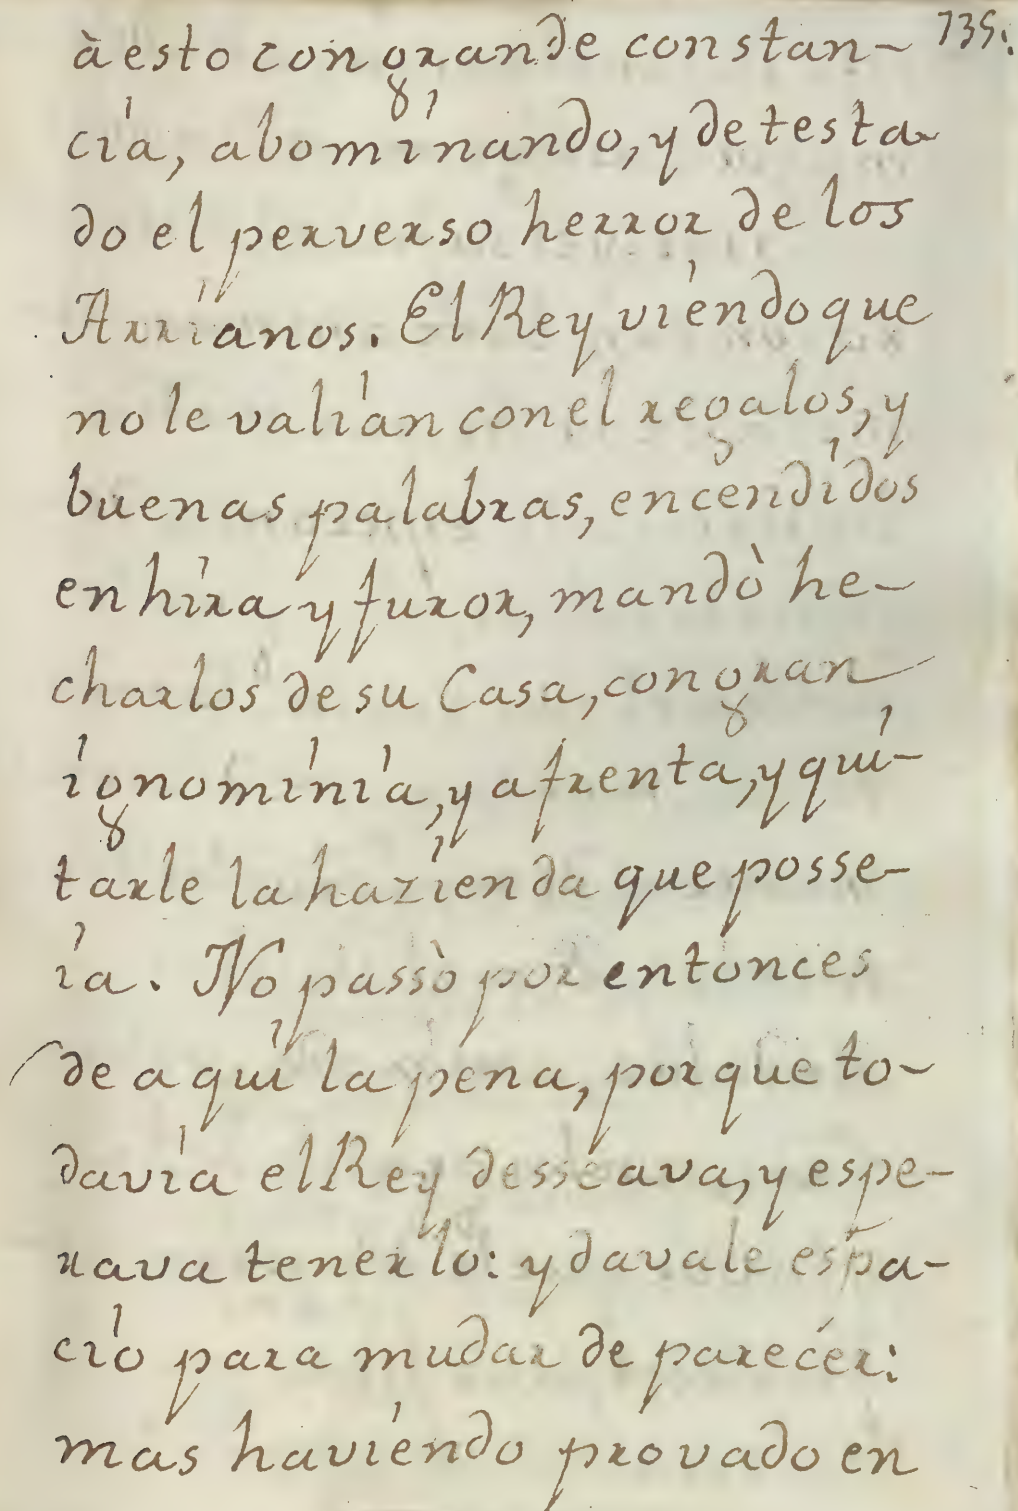 à esto con grande constan- 735.
cía, abomínando, y detesta-
do el perverso herror de los
Arríanos. El Rey víendo que
no le valían con el regalos, y
buenas palabras, encendídos
en híra y furor, mandò he-
charlos de su Casa, con gran
ígnomínía, y afrenta, y quí-
tarle la hazíenda que posse-
ía. No passò por entonces
de aquí la pena, porque to-
davía el Rey desseava, y espe-
rava tenerlo: y davale espa-
cío para mudar de parecér:
mas havíendo provado en